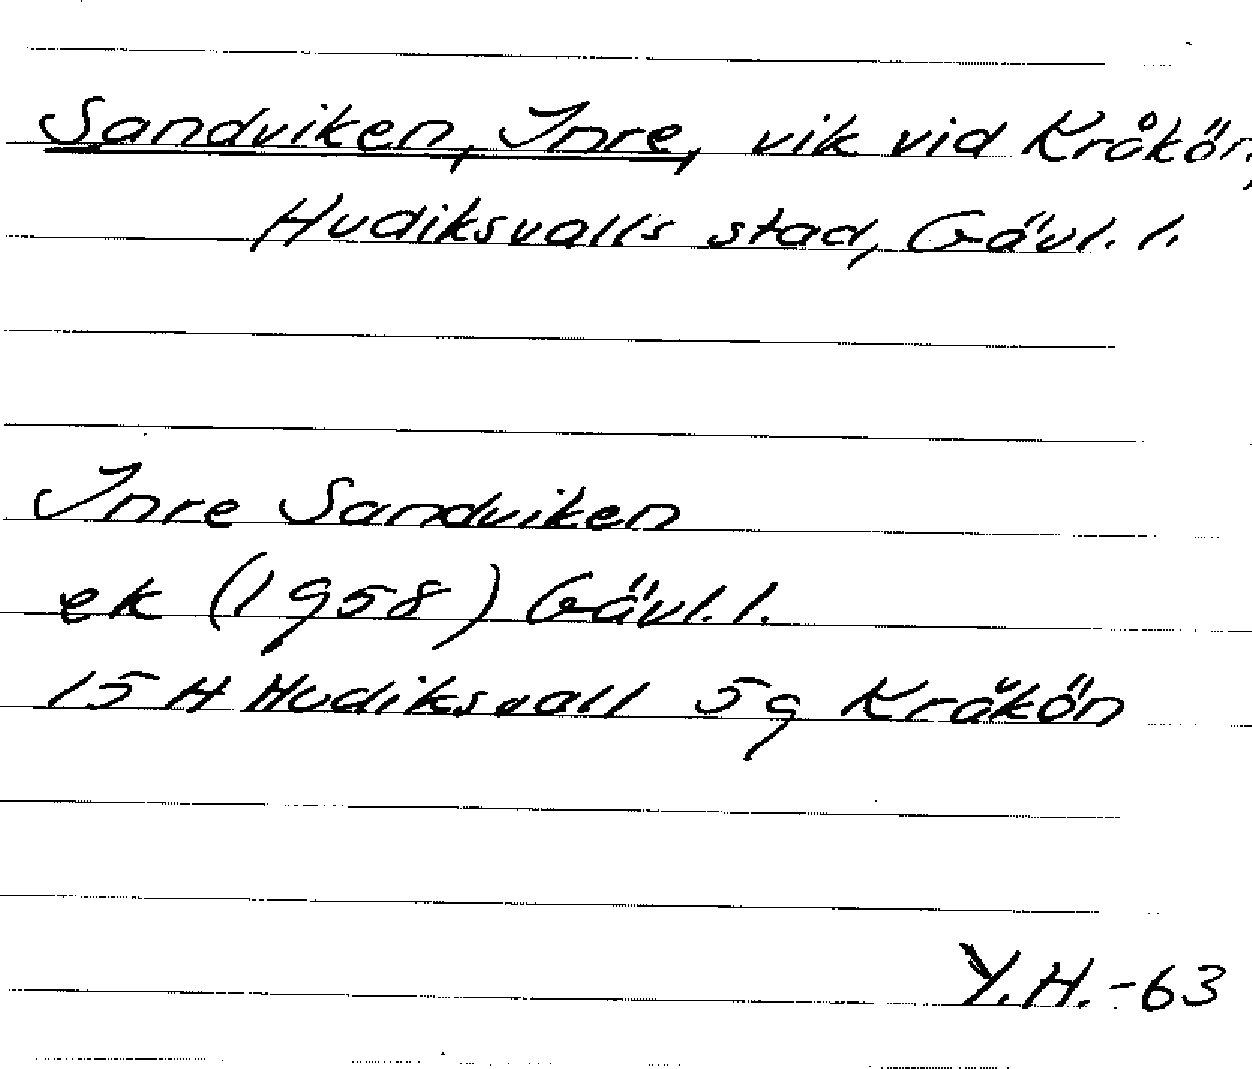 Sandviken, Inre, vik vid Kråkön,
Hudiksvalls stad, Gävl. l.
Inre Sandviken
ek (1958) Gävl. l.
15 H Hudiksvall 5g Kråkön
Y.H.-63